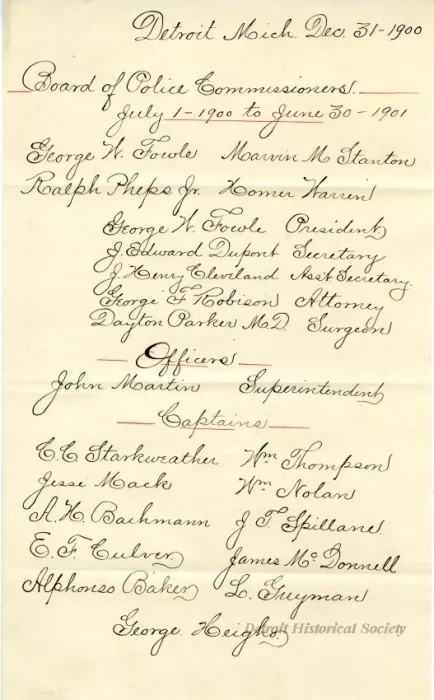 Detroit Mich. Dec. 31-1900
Board of Police Commissioners.
July 1-1900 to June 30-1901
George W. Fowle Marvin M Stanton
Ralph Pheps Jr. Homer Warren
George W. Fowle President
J. Edward Dupont Secretary
J. Henry Cleveland Ass't Secretary.
George F Robison Attorney
Dayton Parker M.D. Surgeon
Officers
John Martin Superintendent
Captains
C. C. Starkweather Wm Thompson
Jesse Mack Wm Nolan
A. H. Bachmann J. T. Spillane
E. F. Culver James McDonnell
Alphonso Baker L. Guyman
George Heighs
Detroit Historical Society